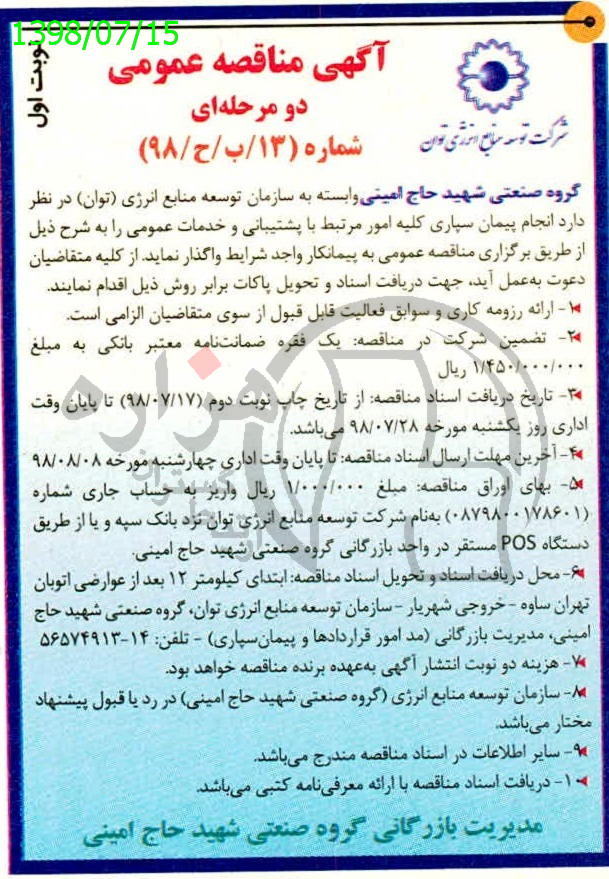 1398/07/15
نوبت اول
آگهی مناقصه عمومی
دو مرحله‌ای
شماره (۱۳/ب/ح/۹۸)
شرکت توسعه منابع انرژی توان
گروه صنعتی شهید حاج امینی وابسته به سازمان توسعه منابع انرژی (توان) در نظر
دارد انجام پیمان سپاری کلیه امور مرتبط با پشتیبانی و خدمات عمومی را به شرح ذیل
از طریق برگزاری مناقصه عمومی به پیمانکار واجد شرایط واگذار نماید. از کلیه متقاضیان
دعوت به‌عمل آید، جهت دریافت اسناد و تحویل پاکات برابر روش ذیل اقدام نمایند.
۱- ارائه رزومه کاری و سوابق فعالیت قابل قبول از سوی متقاضیان الزامی است.
۲- تضمین شرکت در مناقصه: یک فقره ضمانت‌نامه معتبر بانکی به مبلغ
۱/۴۵۰/۰۰۰/۰۰۰ ریال
۳- تاریخ دریافت اسناد مناقصه: از تاریخ چاپ نوبت دوم (۹۸/۰۷/۱۷) تا پایان وقت
اداری روز یکشنبه مورخه ۹۸/۰۷/۲۸ می‌باشد.
۴- آخرین مهلت ارسال اسناد مناقصه: تا پایان وقت اداری چهارشنبه مورخه ۹۸/۰۸/۰۸
۵- بهای اوراق مناقصه: مبلغ ۱/۰۰۰/۰۰۰ ریال واریز به حساب جاری شماره
(۰۸۷۹۸۰۰۱۷۸۶۰۱) به‌نام شرکت توسعه منابع انرژی توان نزد بانک سپه و یا از طریق
دستگاه POS مستقر در واحد بازرگانی گروه صنعتی شهید حاج امینی.
۶- محل دریافت اسناد و تحویل اسناد مناقصه: ابتدای کیلومتر ۱۲ بعد از عوارضی اتوبان
تهران ساوه - خروجی شهریار - سازمان توسعه منابع انرژی توان، گروه صنعتی شهید حاج
امینی، مدیریت بازرگانی (مد امور قراردادها و پیمان‌سپاری) - تلفن: ۱۴-۵۶۵۷۴۹۱۳
۷- هزینه دو نوبت انتشار آگهی به‌عهده برنده مناقصه خواهد بود.
۸- سازمان توسعه منابع انرژی (گروه صنعتی شهید حاج امینی) در رد یا قبول پیشنهاد
مختار می‌باشد.
۹- سایر اطلاعات در اسناد مناقصه مندرج می‌باشد.
۱۰- دریافت اسناد مناقصه با ارائه معرفی‌نامه کتبی می‌باشد.
مدیریت بازرگانی گروه صنعتی شهید حاج امینی
هزاره